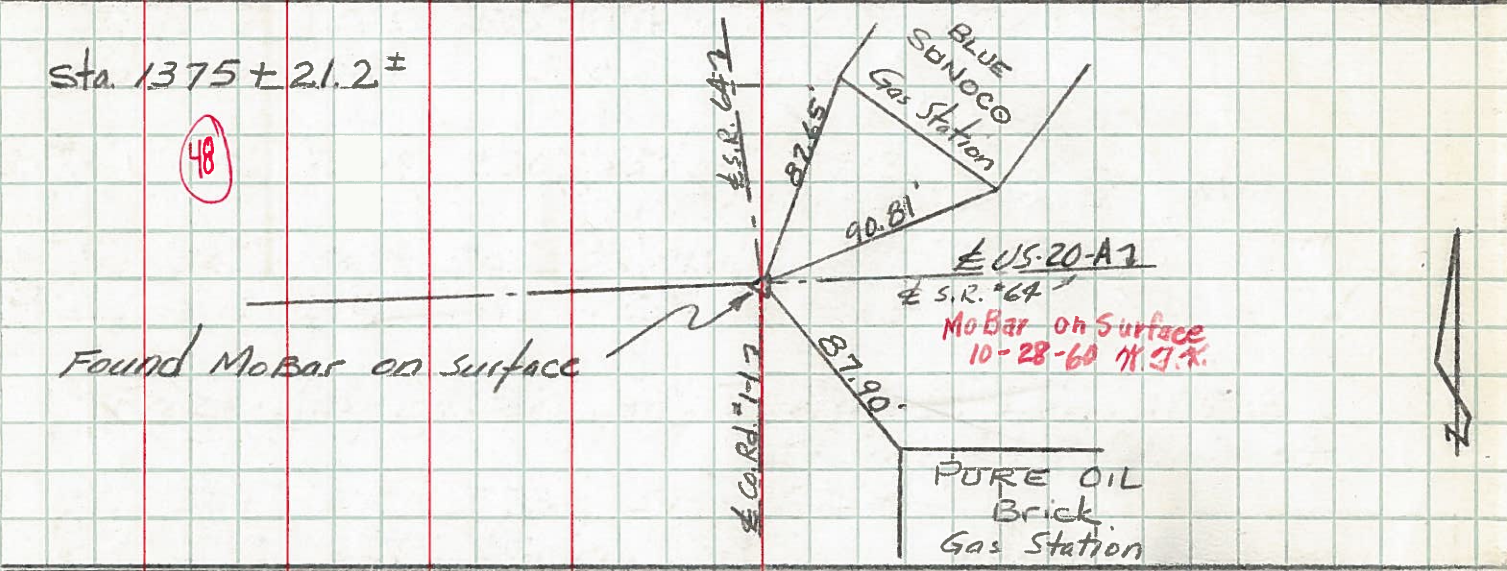 Sta. 1375 + 21.2 ±
48
℄ S.R. 64
82.65'
BLUE
SUNOCO
Gas Station
90.81'
℄ US-20-A
℄ S.R. #64
MoBar on Surface
10-28-60
Found MoBar on surface
87.90'
℄ Co. Rd. #1-1
PURE OIL
Brick
Gas Station